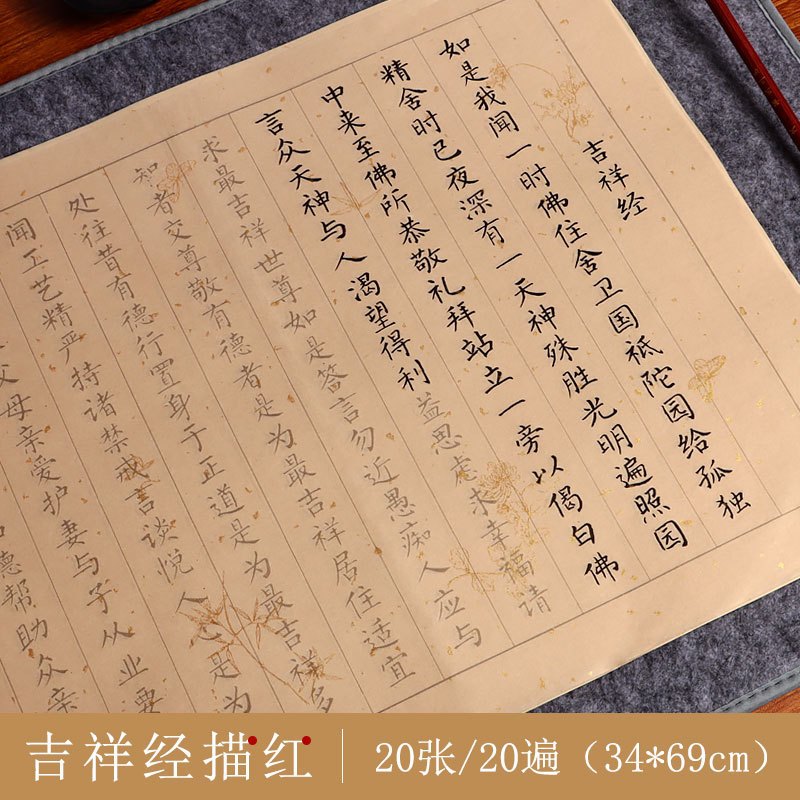 吉祥经
如是我闻一时佛住舍卫国祇陀园给孤独
精舍时已夜深有一天神殊胜光明遍照园
中来至佛所恭敬礼拜站立一旁以偈白佛
言众天神与人渴望得利益思虑求幸福请
求最吉祥世尊如是答言勿近愚痴人应与
知者交尊敬有德者是为最吉祥居住适宜
处往昔有德行置身于正道是为最吉祥多
闻工艺精严持诸禁戒言谈悦人心是为
父母亲爱护妻与子从业要
德帮助众亲
吉祥经描红
20张/20遍（34*69cm）